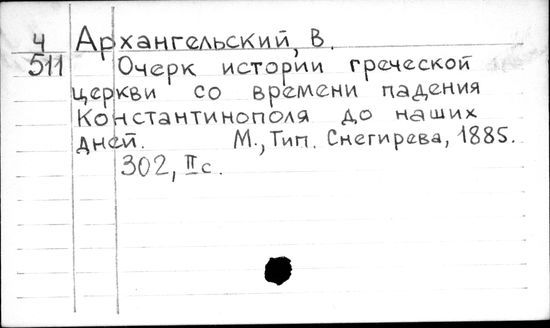 Ч Архангельский, В.
511 Очерк истории греческой
церкви со времени падения
Константинополя до наших
дней. М., Тип. Снегирева, 1885.
302, II с.